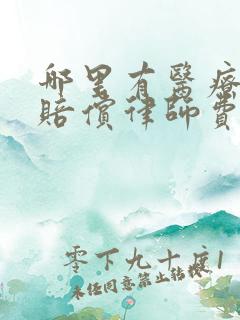 哪里有醫療
賠償律師費
零下九十度1
未經同意禁止轉載